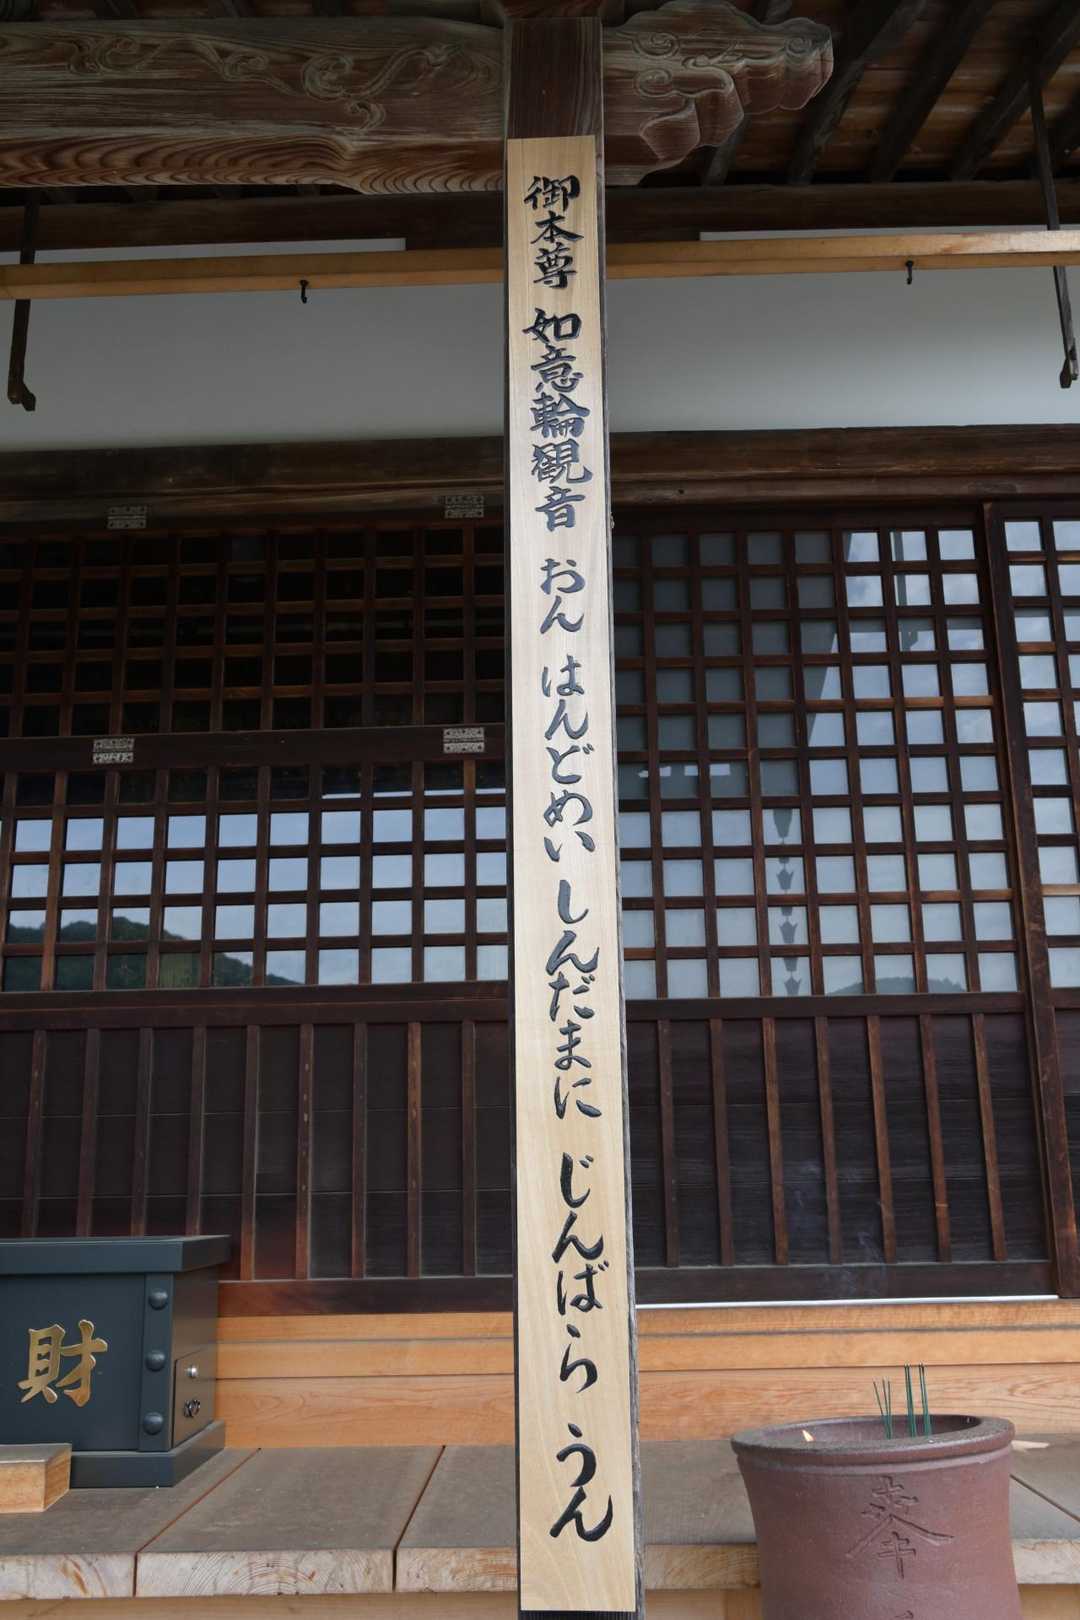 御本尊 如意輪観音 おん はんどめい しんだまに じんばら うん
財
奉